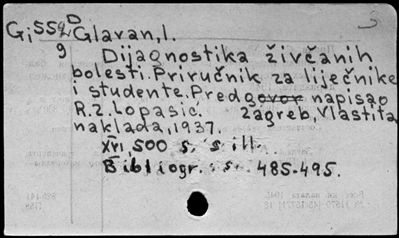 Gi 559 D Glavan, I.
9
Dijagnostika živčanih
bolesti. Priručnik za liječnike
i studente. Predgovor napisao
R.Z. Lopasić. Zagreb, Vlastita
naklada, 1937.
XVI, 500 s. s ill.
Bibliogr.: s. 485-495.